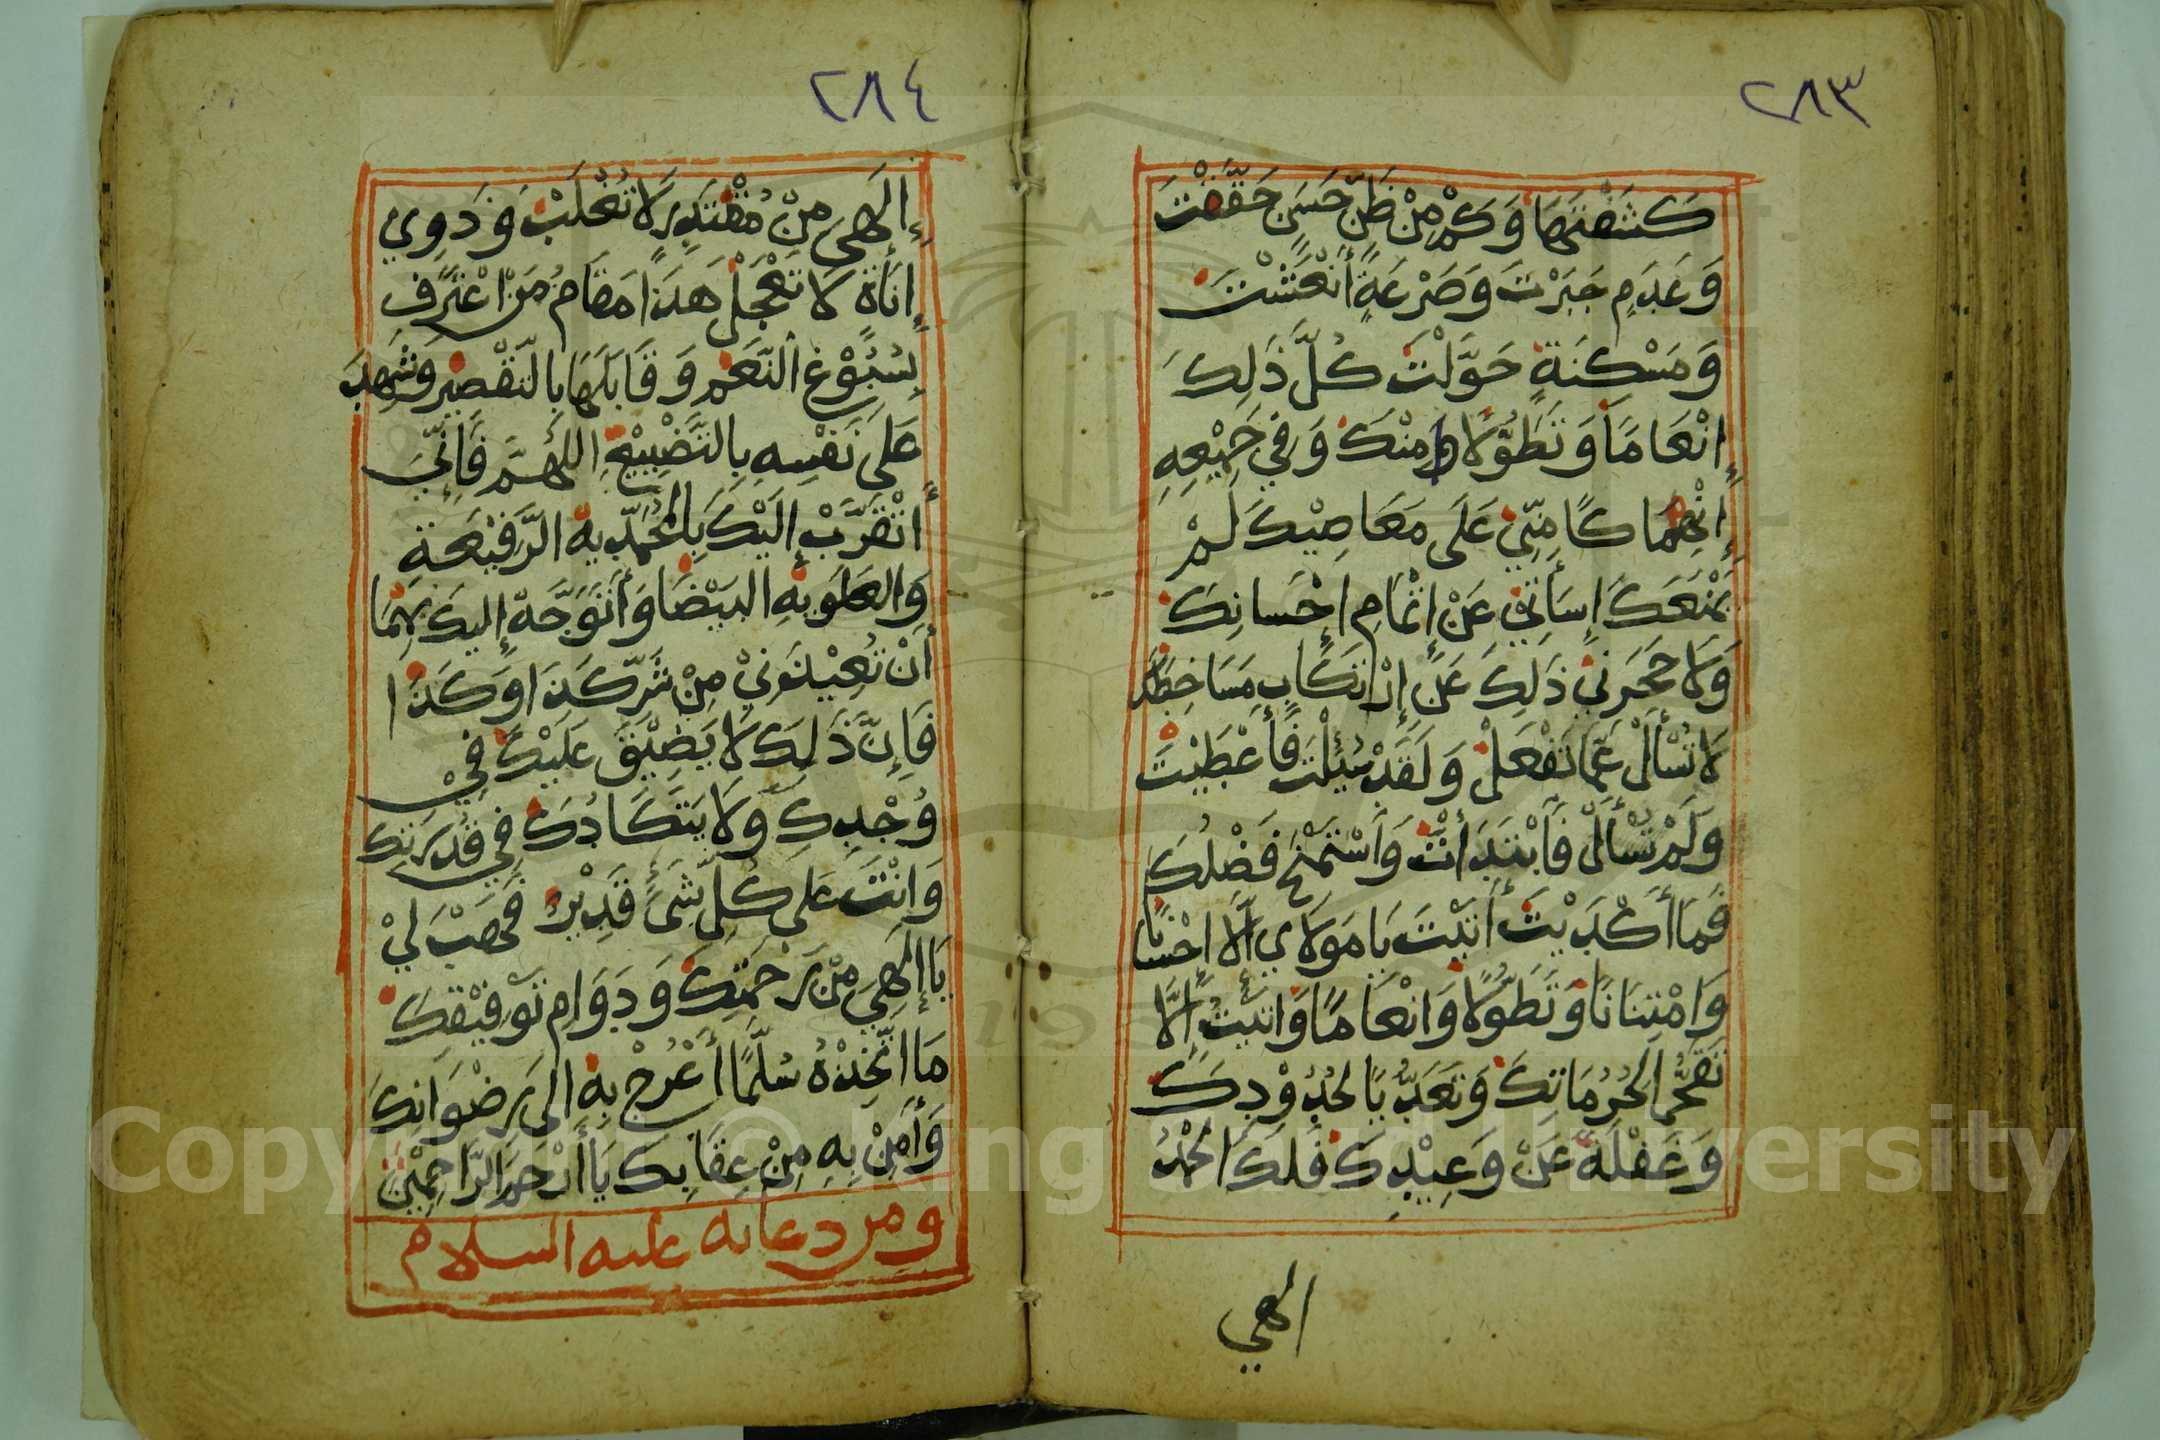 ٢٨٣
كَشَفْتَهَا وَكَمْ مِنْ ظَنٍّ حَسَنٍ حَقَّقْتَ
وَعَدَمٍ جَبَرْتَ وَصَرْعَةٍ أَنْعَشْتَ
وَمَسْكَنَةٍ حَوَّلْتَ كُلَّ ذَلِكَ
إِنْعَامَاً وَتَطَوُّلًا مِنْكَ وَفِي جَمِيْعِهِ
إِنْهِمَاكًا مِنِّي عَلَى مَعَاصِيْكَ لَمْ
يَمْنَعَكَ إِسَأَتِي عَنْ إِتْمَامِ إِحْسَانِكَ
وَلَا حَجَرَنِي ذَلِكَ عَنِ إِرْتَكَابِ مَسَاخِطِكَ
لَا تُسْأَلُ عَمَّا تَفْعَلْ وَلَقَدْ سُئِلْتَ فَأَعْطَيْتَ
وَلَمْ تُسْأَلْ فَابْتَدَأْتَ وَاسْتُمْنِحَ فَضْلُكَ
فَمَا أَكْدَيْتَ أَبَيْتَ يَا مَوْلَايَ إِلَّا إِحْسَانًا
وَامْتِنَانًا وَتَطَوُّلًا وَإِنْعَامًا وَأَبَيْتُ إِلَّا
تَقَحُّمَ الحُرُمَاتِكَ وَتَعَدِّيَا لِحُدُوْدِكَ
وَغَفْلَةً عَنْ وَعِيْدِكَ فَلَكَ الْحَمْدُ
الهي
٢٨٤
إِلَهِي مِنْ مُقْتَدِرٍ لَا تُغْلَبْ وَذَوِي
إِنَاةٍ لَا تَعْجَلْ هَذَا مَقَامُ مَنْ اعْتَرَفَ
بِسُبُوْغِ النِّعَمِ وَقَابَلَهَا بِالتَّقْصِيْرِ وَشَهِدَ
عَلَى نَفْسِهِ بِالتَّضْيِيْعِ اللَّهُمَّ فَإِنِّي
أَتَقَرَّبُ إِلَيْكَ بِالمُحَمَّدِيَةِ الرَّفِيْعَةِ
وَالْعَلَوِيَةِ الْبَيْضَا وَأَتَوَجَّهُ إِلَيْكَ بِهِمَا
أَنْ تُعِيْذَنِيْ مِنْ شَرِّ كَذَا وَكَذَا
فَإِنَّ ذَلِكَ لَا يَضِيْقُ عَلَيْكَ فِيْ
وُجْدِكَ وَلَا يَتَكَأدُكَ فِي قُدْرَتِكَ
وَانْتَ عَلَى كُلِّ شَيءٍ قَدِيْرٌ فَهَبْ لِيْ
يَا إِلَهِي مِنْ رَحْمَتِكَ وَدَوَامِ تَوْفِيْقِكَ
مَا اتَّخِذُهُ سُلَّمًا أَعْرُجُ بِهِ الى رِضْوَانِكَ
وَأَمَنُ بِهِ مِنْ عِقَابِكَ يَا أَرْحَمَ الرَّاحِمِيْنَ
ومن دعائه عليه السلام
Copyright © King Saud University